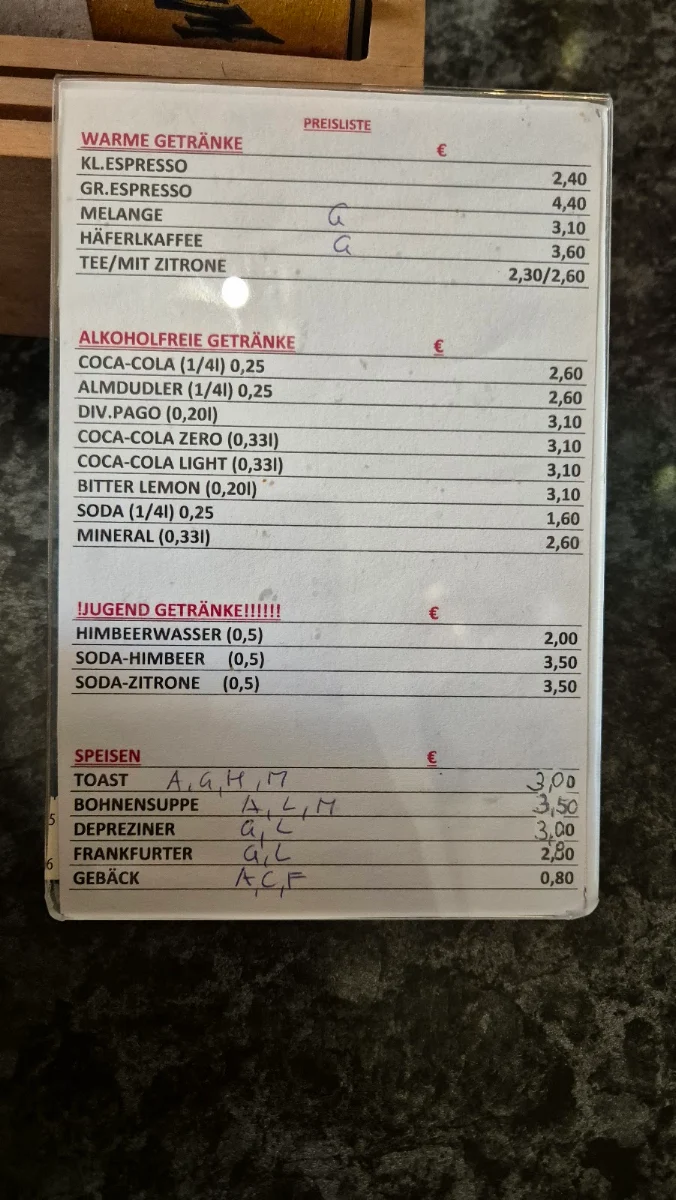 PREISLISTE
WARME GETRÄNKE €
KL.ESPRESSO 2,40
GR.ESPRESSO 4,40
MELANGE G 3,10
HÄFERLKAFFEE G 3,60
TEE/MIT ZITRONE 2,30/2,60
ALKOHOLFREIE GETRÄNKE €
COCA-COLA (1/4l) 0,25 2,60
ALMDUDLER (1/4l) 0,25 2,60
DIV.PAGO (0,20l) 3,10
COCA-COLA ZERO (0,33l) 3,10
COCA-COLA LIGHT (0,33l) 3,10
BITTER LEMON (0,20l) 3,10
SODA (1/4l) 0,25 1,60
MINERAL (0,33l) 2,60
!JUGEND GETRÄNKE!!!!!! €
HIMBEERWASSER (0,5) 2,00
SODA-HIMBEER (0,5) 3,50
SODA-ZITRONE (0,5) 3,50
SPEISEN €
TOAST A,G,H,M 3,00
BOHNENSUPPE A,L,M 3,50
DEPREZINER G,L 3,00
FRANKFURTER G,L 2,80
GEBÄCK A,C,F 0,80
5
6